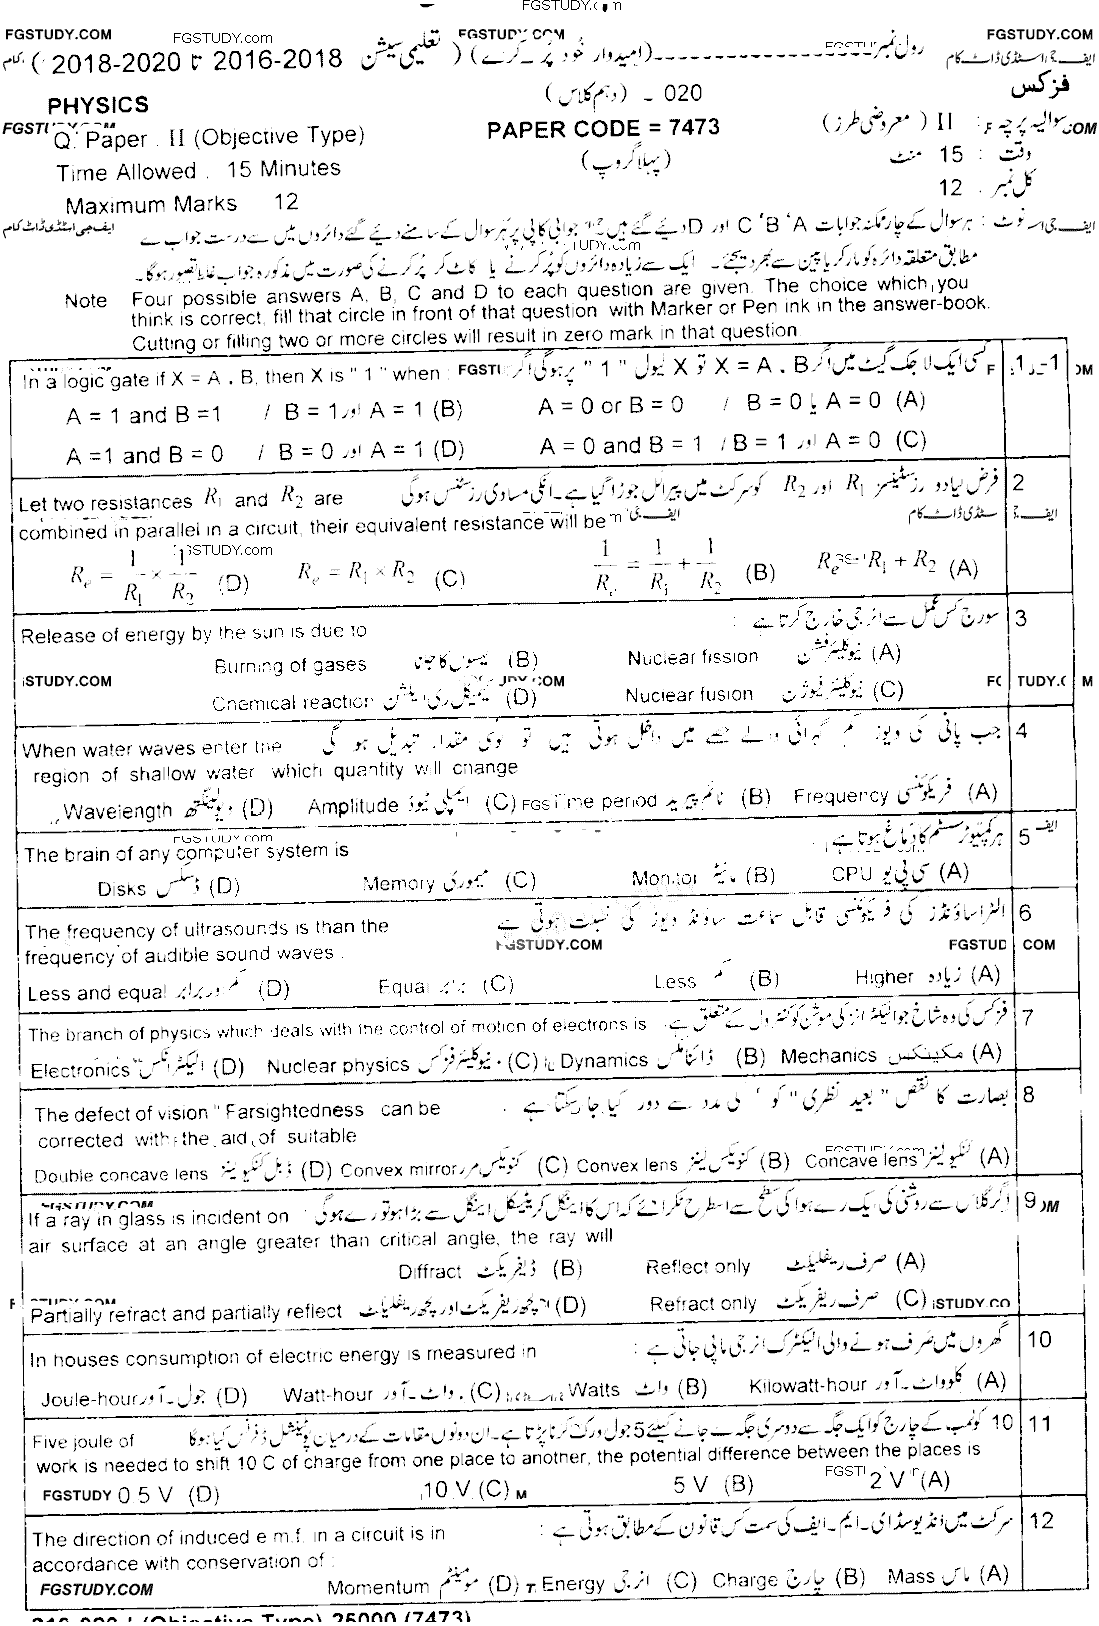 FGSTUDY.COM
FGSTUDY.com
FGSTUDY.COM
FGSTUDY.COM
رول نمبر ------------------ (امیدوار خود پُر کرے) ( تعلیمی سیشن 2016-2018 تا 2018-2020 )
ایف جی اسٹڈی ڈاٹ کام
PHYSICS
020 - (دہم کلاس)
فزکس
Q. Paper . II (Objective Type)
PAPER CODE = 7473
سوالیہ پرچہ : II ( معروضی طرز)
Time Allowed . 15 Minutes
(پہلا گروپ)
وقت : 15 منٹ
Maximum Marks 12
کل نمبر . 12
نوٹ : ہر سوال کے چار ممکنہ جوابات A ' B ' C اور D دیئے گئے ہیں جوابی کاپی پر ہر سوال کے سامنے دیئے گئے دائروں میں سے درست جواب کے
ایف جی اسٹڈی ڈاٹ کام
مطابق متعلقہ دائرہ کو مارکر یا پین سے بھر دیجئے۔ ایک سے زیادہ دائروں کو پُر کرنے یا کاٹ کر پُر کرنے کی صورت میں مذکورہ جواب غلط تصور ہوگا۔
Note Four possible answers A, B, C and D to each question are given. The choice which you
think is correct, fill that circle in front of that question with Marker or Pen ink in the answer-book.
Cutting or filling two or more circles will result in zero mark in that question
1-1 کسی ایک لاجک گیٹ میں اگر X = A . B تو X لیول " 1 " پر ہوگی اگر
In a logic gate if X = A . B, then X is " 1 " when :
A = 0 or B = 0 / B = 0 یا A = 0 (A)
A = 1 and B =1 / B = 1 اور A = 1 (B)
A = 0 and B = 1 / B = 1 اور A = 0 (C)
A =1 and B = 0 / B = 0 اور A = 1 (D)
2 فرض کیا دو رزسٹینسز R1 اور R2 کو سرکٹ میں پیرالل جوڑا گیا ہے۔ انکی مساوی رزسٹنس ہوگی
Let two resistances R1 and R2 are
combined in parallel in a circuit, their equivalent resistance will be
Re = R1 + R2 (A)
1/Re = 1/R1 + 1/R2 (B)
Re = R1 × R2 (C)
Re = 1/R1 × 1/R2 (D)
3 سورج کس عمل سے انرجی خارج کرتا ہے :
Release of energy by the sun is due to
Nuclear fission نیوکلیئر فشن (A)
Burning of gases گیسوں کا جلنا (B)
Nuclear fusion نیوکلیئر فیوژن (C)
Chemical reaction کیمیکل ری ایکشن (D)
4 جب پانی کی ویوز کم گہرائی والے حصے میں داخل ہوتی ہیں تو کونسی مقدار تبدیل ہو گی
When water waves enter the
region of shallow water which quantity will change
Frequency فریکوئنسی (A)
Time period ٹائم پیریڈ (B)
Amplitude ایمپلی ٹیوڈ (C)
Wavelength ویولینگتھ (D)
5 ہر کمپیوٹر سسٹم کا دماغ ہوتا ہے :
The brain of any computer system is
CPU سی پی یو (A)
Monitor مانیٹر (B)
Memory میموری (C)
Disks ڈسکس (D)
6 الٹراساؤنڈز کی فریکوئنسی قابل سماعت ساؤنڈ ویوز کی نسبت ہوتی ہے
The frequency of ultrasounds is than the
frequency of audible sound waves .
Higher زیادہ (A)
Less کم (B)
Equal برابر (C)
Less and equal کم اور برابر (D)
7 فزکس کی وہ شاخ جو الیکٹرانز کی موشن کو کنٹرول کے متعلق ہے .
The branch of physics which deals with the control of motion of electrons is
Mechanics مکینکس (A)
Dynamics ڈائنامکس (B)
Nuclear physics نیوکلیئر فزکس (C)
Electronics الیکٹرانکس (D)
8 بصارت کا نقص " بعید نظری " کو کی مدد سے دور کیا جا سکتا ہے .
The defect of vision " Farsightedness can be
corrected with the aid of suitable
Concave lens کنکیو لینز (A)
Convex lens کنویکس لینز (B)
Convex mirror کنویکس مرر (C)
Double concave lens ڈبل کنکیو لینز (D)
9 اگر گلاس سے روشنی کی ایک رے ہوا کی سطح سے اسطرح ٹکرائے کہ اس کا اینگل کریٹیکل اینگل سے بڑا ہو تو رے ہوگی
If a ray in glass is incident on
air surface at an angle greater than critical angle, the ray will
Reflect only صرف ریفلیکٹ (A)
Diffract ڈیفریکٹ (B)
Refract only صرف ریفریکٹ (C)
Partially refract and partially reflect کچھ ریفریکٹ اور کچھ ریفلیکٹ (D)
10 گھروں میں صَرف ہونے والی الیکٹرک انرجی ماپی جاتی ہے :
In houses consumption of electric energy is measured in
Kilowatt-hour کلوواٹ۔آور (A)
Watts واٹ (B)
Watt-hour واٹ۔آور (C)
Joule-hour جول۔آور (D)
11 10 کولمب کے چارج کو ایک جگہ سے دوسری جگہ لے جانے کیلئے 5 جول ورک کرنا پڑتا ہے۔ ان دونوں مقامات کے درمیان پوٹینشل ڈفرنس کیا ہوگا
Five joule of
work is needed to shift 10 C of charge from one place to another, the potential difference between the places is
2 V (A)
5 V (B)
10 V (C)
0.5 V (D)
12 سرکٹ میں انڈیوسڈ ای۔ایم۔ایف کی سمت کس قانون کے مطابق ہوتی ہے :
The direction of induced e.m.f. in a circuit is in
accordance with conservation of :
Mass ماس (A)
Charge چارج (B)
Energy انرجی (C)
Momentum مومینٹم (D)
FGSTUDY.COM
(Objective Type) 25000 (7473)